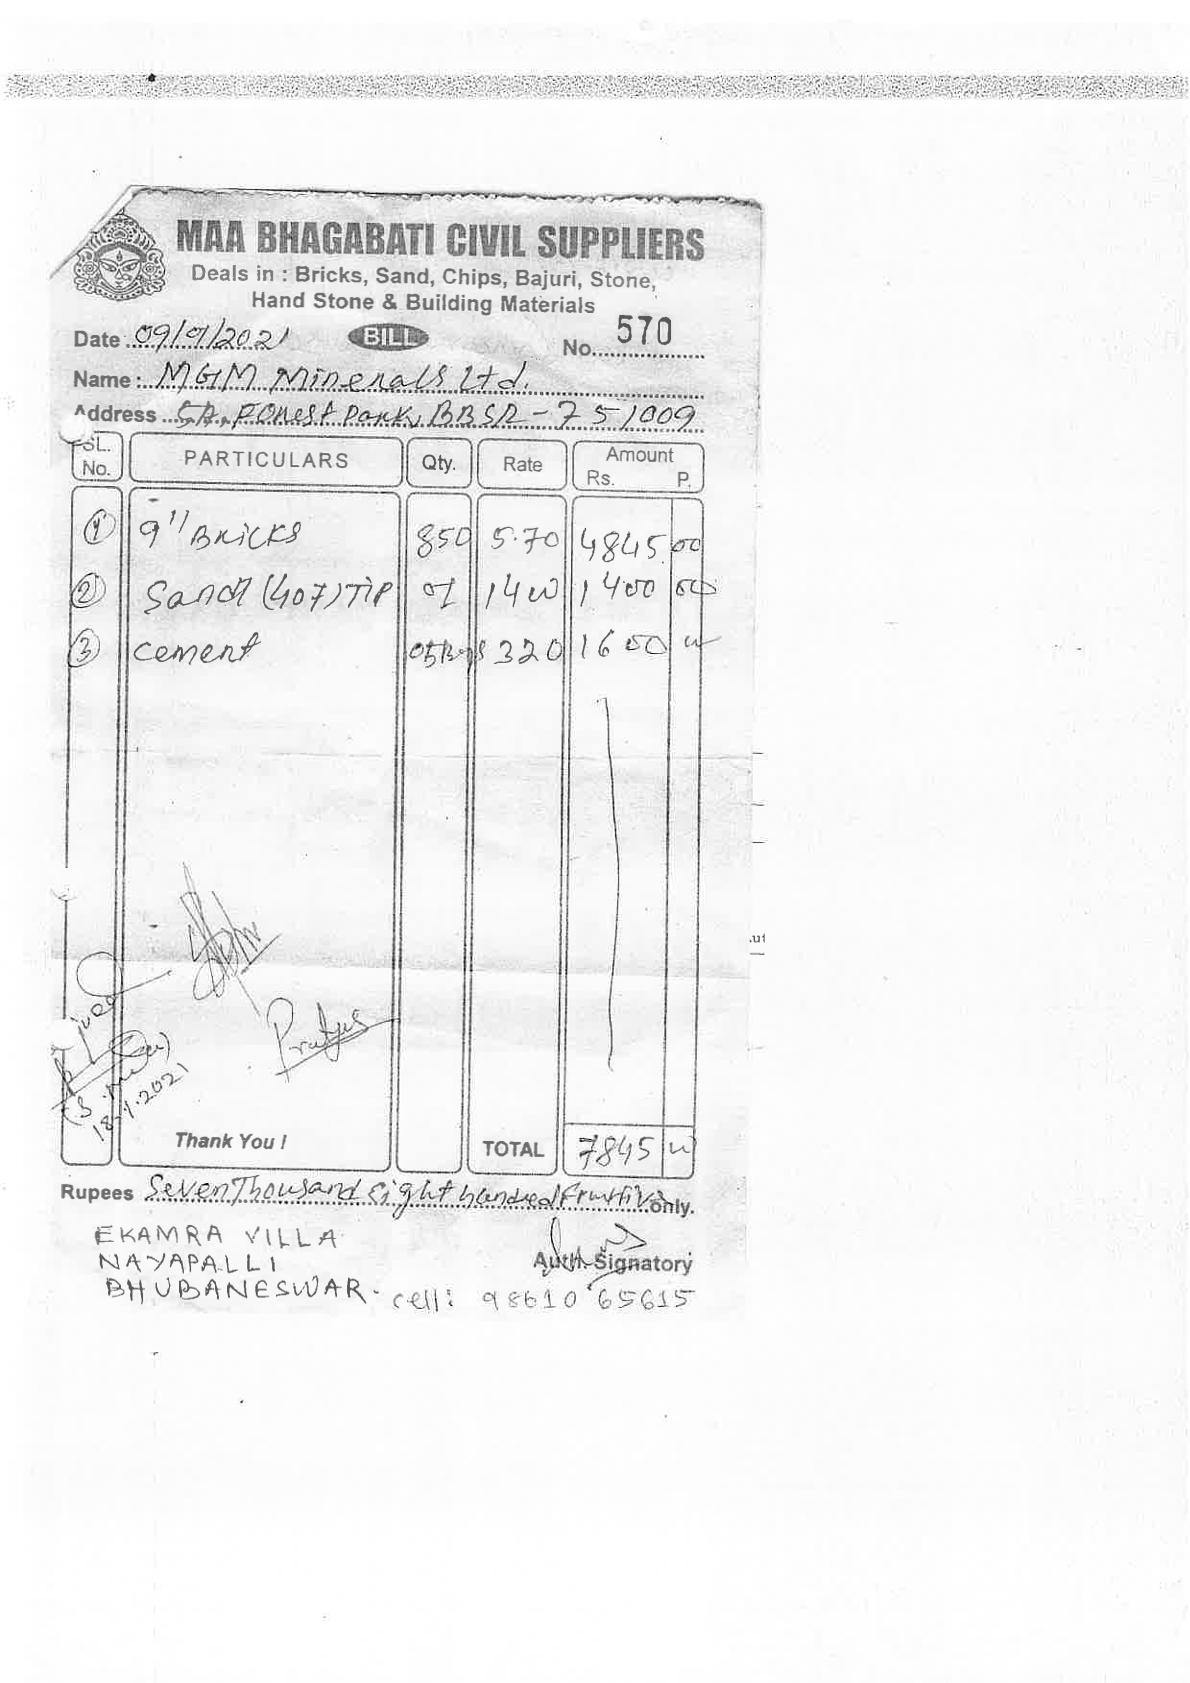 MAA BHAGABATI CIVIL SUPPLIERS
Deals in : Bricks, Sand, Chips, Bajuri, Stone,
Hand Stone & Building Materials
Date 09/ /2021 BILL No. 570
Name : MGM Minerals Ltd.
Address Forest Park, BBSR - 751009
SL. No. PARTICULARS Qty. Rate Amount Rs. P.
1 9" Bricks 850 5.70 4845 00
2 Sand (407) TIP 01 1400 1400 00
3 cement 05Bags 320 1600 00
Pratyus
Thank You ! TOTAL 7845 00
Rupees Seven Thousand Eight hundred only.
EKAMRA VILLA
NAYAPALLI
Auth. Signatory
BHUBANESWAR. cell: 98610 65615